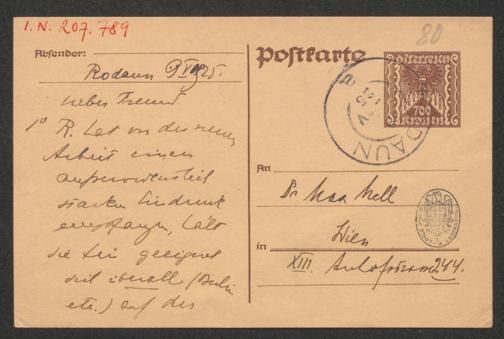 I.N. 207.789
80
Absender:
Postkarte
Österreich
700
Kronen
RODAUN
Rodaun
Lieber Freund
1º R. hat von der neuen
Arbeit einen
außerordentlich
starken Eindruck
empfangen, hält
sie für geeignet
sich überall (Berlin
etc.) auf der
An
Dr Max Mell
Wien
in
XIII.
244.